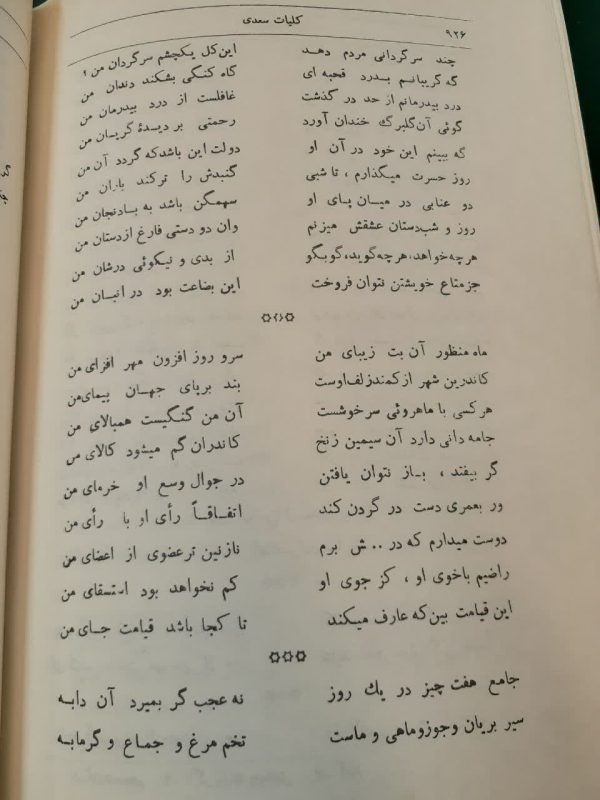 کلیات سعدی ۹۲۶
چند سرگردانی مردم دهد این کل یکچشم سرگردان من ؟
گه گریبانم بدرد قحبه ای گاه کنگی بشکند دندان من
درد بیدرمانم از حد در گذشت غافلست از درد بیدرمان من
گوئی آن گلبرگ خندان آورد رحمتی بر دیدهٔ گریان من
گه ببینم این خود در آن او دولت این باشد که گردد آن من
روز حسرت میگذارم ، تا شبی گنبدش را ترکند باران من
دو عنابی در میان پای او سهمگن باشد به بادنجان من
روز و شب دستان عشقش میزنم وان دو دستی فارغ از دستان من
هرچه خواهد، هرچه گوید، گو بگو از بدی و نیکوئی درشان من
جز متاع خویشتن نتوان فروخت این بضاعت بود در انبان من
ماه منظور آن بت زیبای من سرو روز افزون مهر افزای من
کاندرین شهر از کمند زلف اوست بند برپای جهان پیمای من
هرکسی با ماهروئی سرخوشست آن من گنگیست همبالای من
جامه دانی دارد آن سیمین زنخ کاندران گم میشود کالای من
گر بیفتد ، باز نتوان یافتن در جوال وسع او خرمای من
ور بعمری دست در گردن کند اتفاقاً رأی او با رأی من
دوست میدارم که در . . ش برم نازنین تر عضوی از اعضای من
راضیم باخوی او ، کز جوی او کم نخواهد بود استسقای من
این قیامت بین که عارف میکند تا کجا باشد قیامت جای من
جامع هفت چیز در یك روز نه عجب گر بمیرد آن دابه
سیر بریان وجوزوماهی و ماست تخم مرغ و جماع و گرمابه